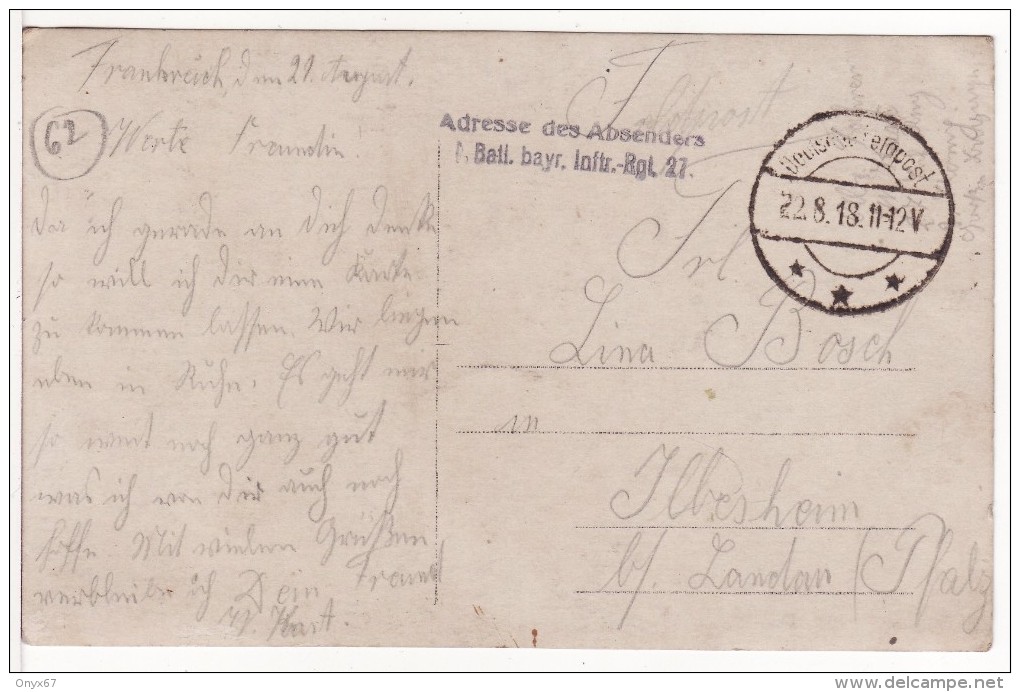 Frankreich, den 21. August.
62
Werte Freundin!
Da ich gerade an Dich denke
so will ich dir eine Karte
zu kommen lassen. Wir liegen
eben in Ruhe. Es geht mir
so weit noch ganz gut
was ich von Dir auch noch
hoffe. Mit vielen Grüßen
verbleibe ich Dein Freund
W. Kast.
Adresse des Absenders
Batl. bayr. Inftr.-Rgt. 27.
Feldpost
Deutsche Feldpost
22.8.18.11-12V
Frl
Lina Bosch
in
Ilbesheim
b/. Landau (Pfalz
Onyx67
delcampe.net